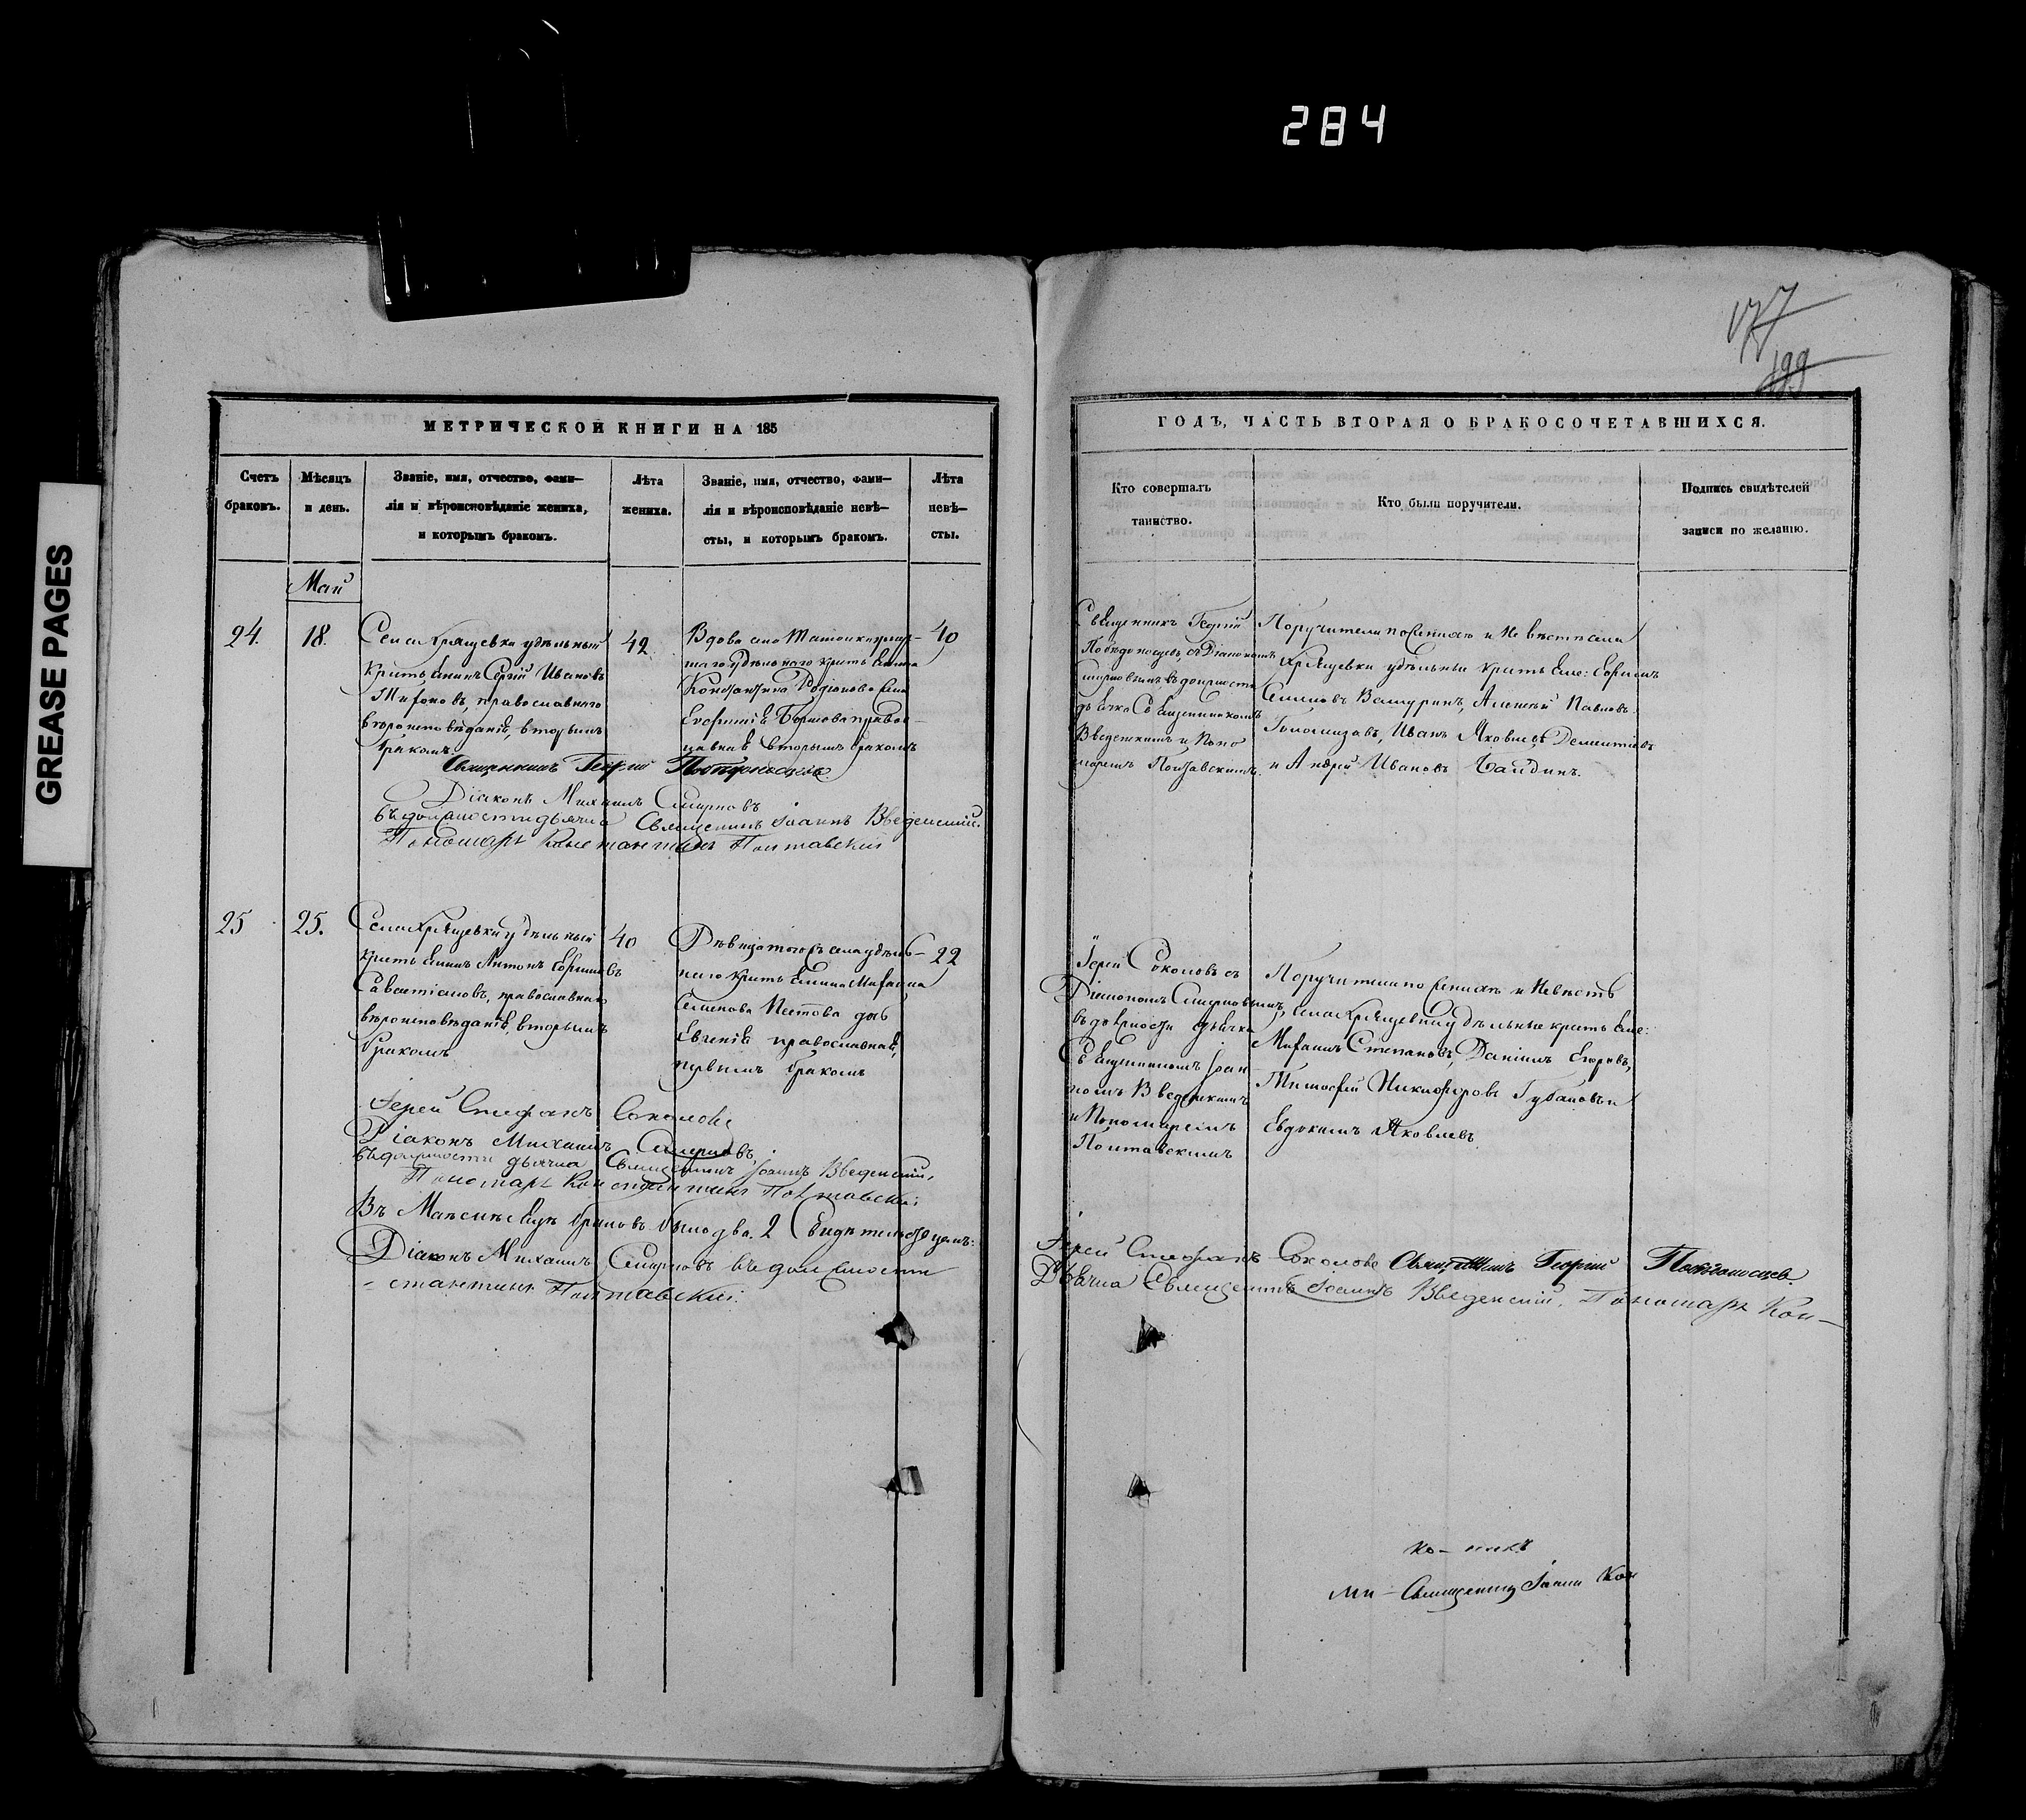 284
GREASE PAGES
177
199
МЕТРИЧЕСКОЙ КНИГИ НА 185
Счетъ браковъ.
Мѣсяцъ и день.
Званіе, имя, отчество, фами-
лія и вѣроисповѣданіе жениха,
и которымъ бракомъ.
Лѣта жениха.
Званіе, имя, отчество, фами-
лія и вѣроисповѣданіе невѣ-
сты, и которымъ бракомъ.
Лѣта невѣ-
сты.
Май
24.
18.
Села Хрящевки удѣльный
крестьянинъ Сергій Ивановъ
православнаго
вѣроисповѣданія, вторымъ
бракомъ.
42
Вдова села
удѣльнаго крестьянина
Родіонова жена
Евфимія православ-
ная вторымъ бракомъ
40
Священникъ Георгій Побѣдоносцевъ
Діаконъ Михаилъ Смирновъ
въ должности дьячка Священникъ Іоаннъ Введенскій.
Пономарь Константинъ Полтавскій
25
25.
Села Хрящевки удѣльный
крестьянинъ Антонъ
православнаго
вѣроисповѣданія, вторымъ
бракомъ
40
Дѣвица тогожъ села удѣль-
наго крестьянина Михаила
Семенова дочь
Евгенія православная,
первымъ бракомъ
22
Іерей Стефанъ Соколовъ
Діаконъ Михаилъ Смирновъ
въ должности дьячка Священникъ Іоаннъ Введенскій,
Пономарь Константинъ Полтавскій
Въ Маѣ мѣсяцѣ браковъ было два. 2 Свидѣтельствуемъ:
Діаконъ Михаилъ Смирновъ въ должности
-стантинъ Полтавскій.
ГОДЪ, ЧАСТЬ ВТОРАЯ О БРАКОСОЧЕТАВШИХСЯ.
Кто совершалъ
таинство.
Кто были поручители.
Подпись свидѣтелей
записи по желанію.
Священникъ Георгій
Побѣдоносцевъ, съ Діакономъ
Смирновымъ, въ должности
дьячка Священникомъ
Введенскимъ и Поно
маремъ Полтавскимъ.
Поручители по женихѣ и невѣстѣ села
Хрящевки удѣльные крестьяне:
Павловъ
Иванъ Яковлевъ Дементьевъ
и Андрей Ивановъ
Іерей Соколовъ съ
Діакономъ Смирновымъ,
въ должности дьячка
Священникомъ Іоан
номъ Введенскимъ
и Пономаремъ
Полтавскимъ
Поручители по женихѣ и невѣстѣ
села Хрящевки удѣльные крестьяне:
Михаилъ Степановъ, Даніилъ Егоровъ,
Тимофей Никифоровъ Губановъ и
Евдокимъ Яковлевъ
Іерей Стефанъ Соколовъ Священникъ Георгій Побѣдоносцевъ
Дьячка Священникъ Іоаннъ Введенскій, Пономарь Кон-
Священникъ Іоаннъ